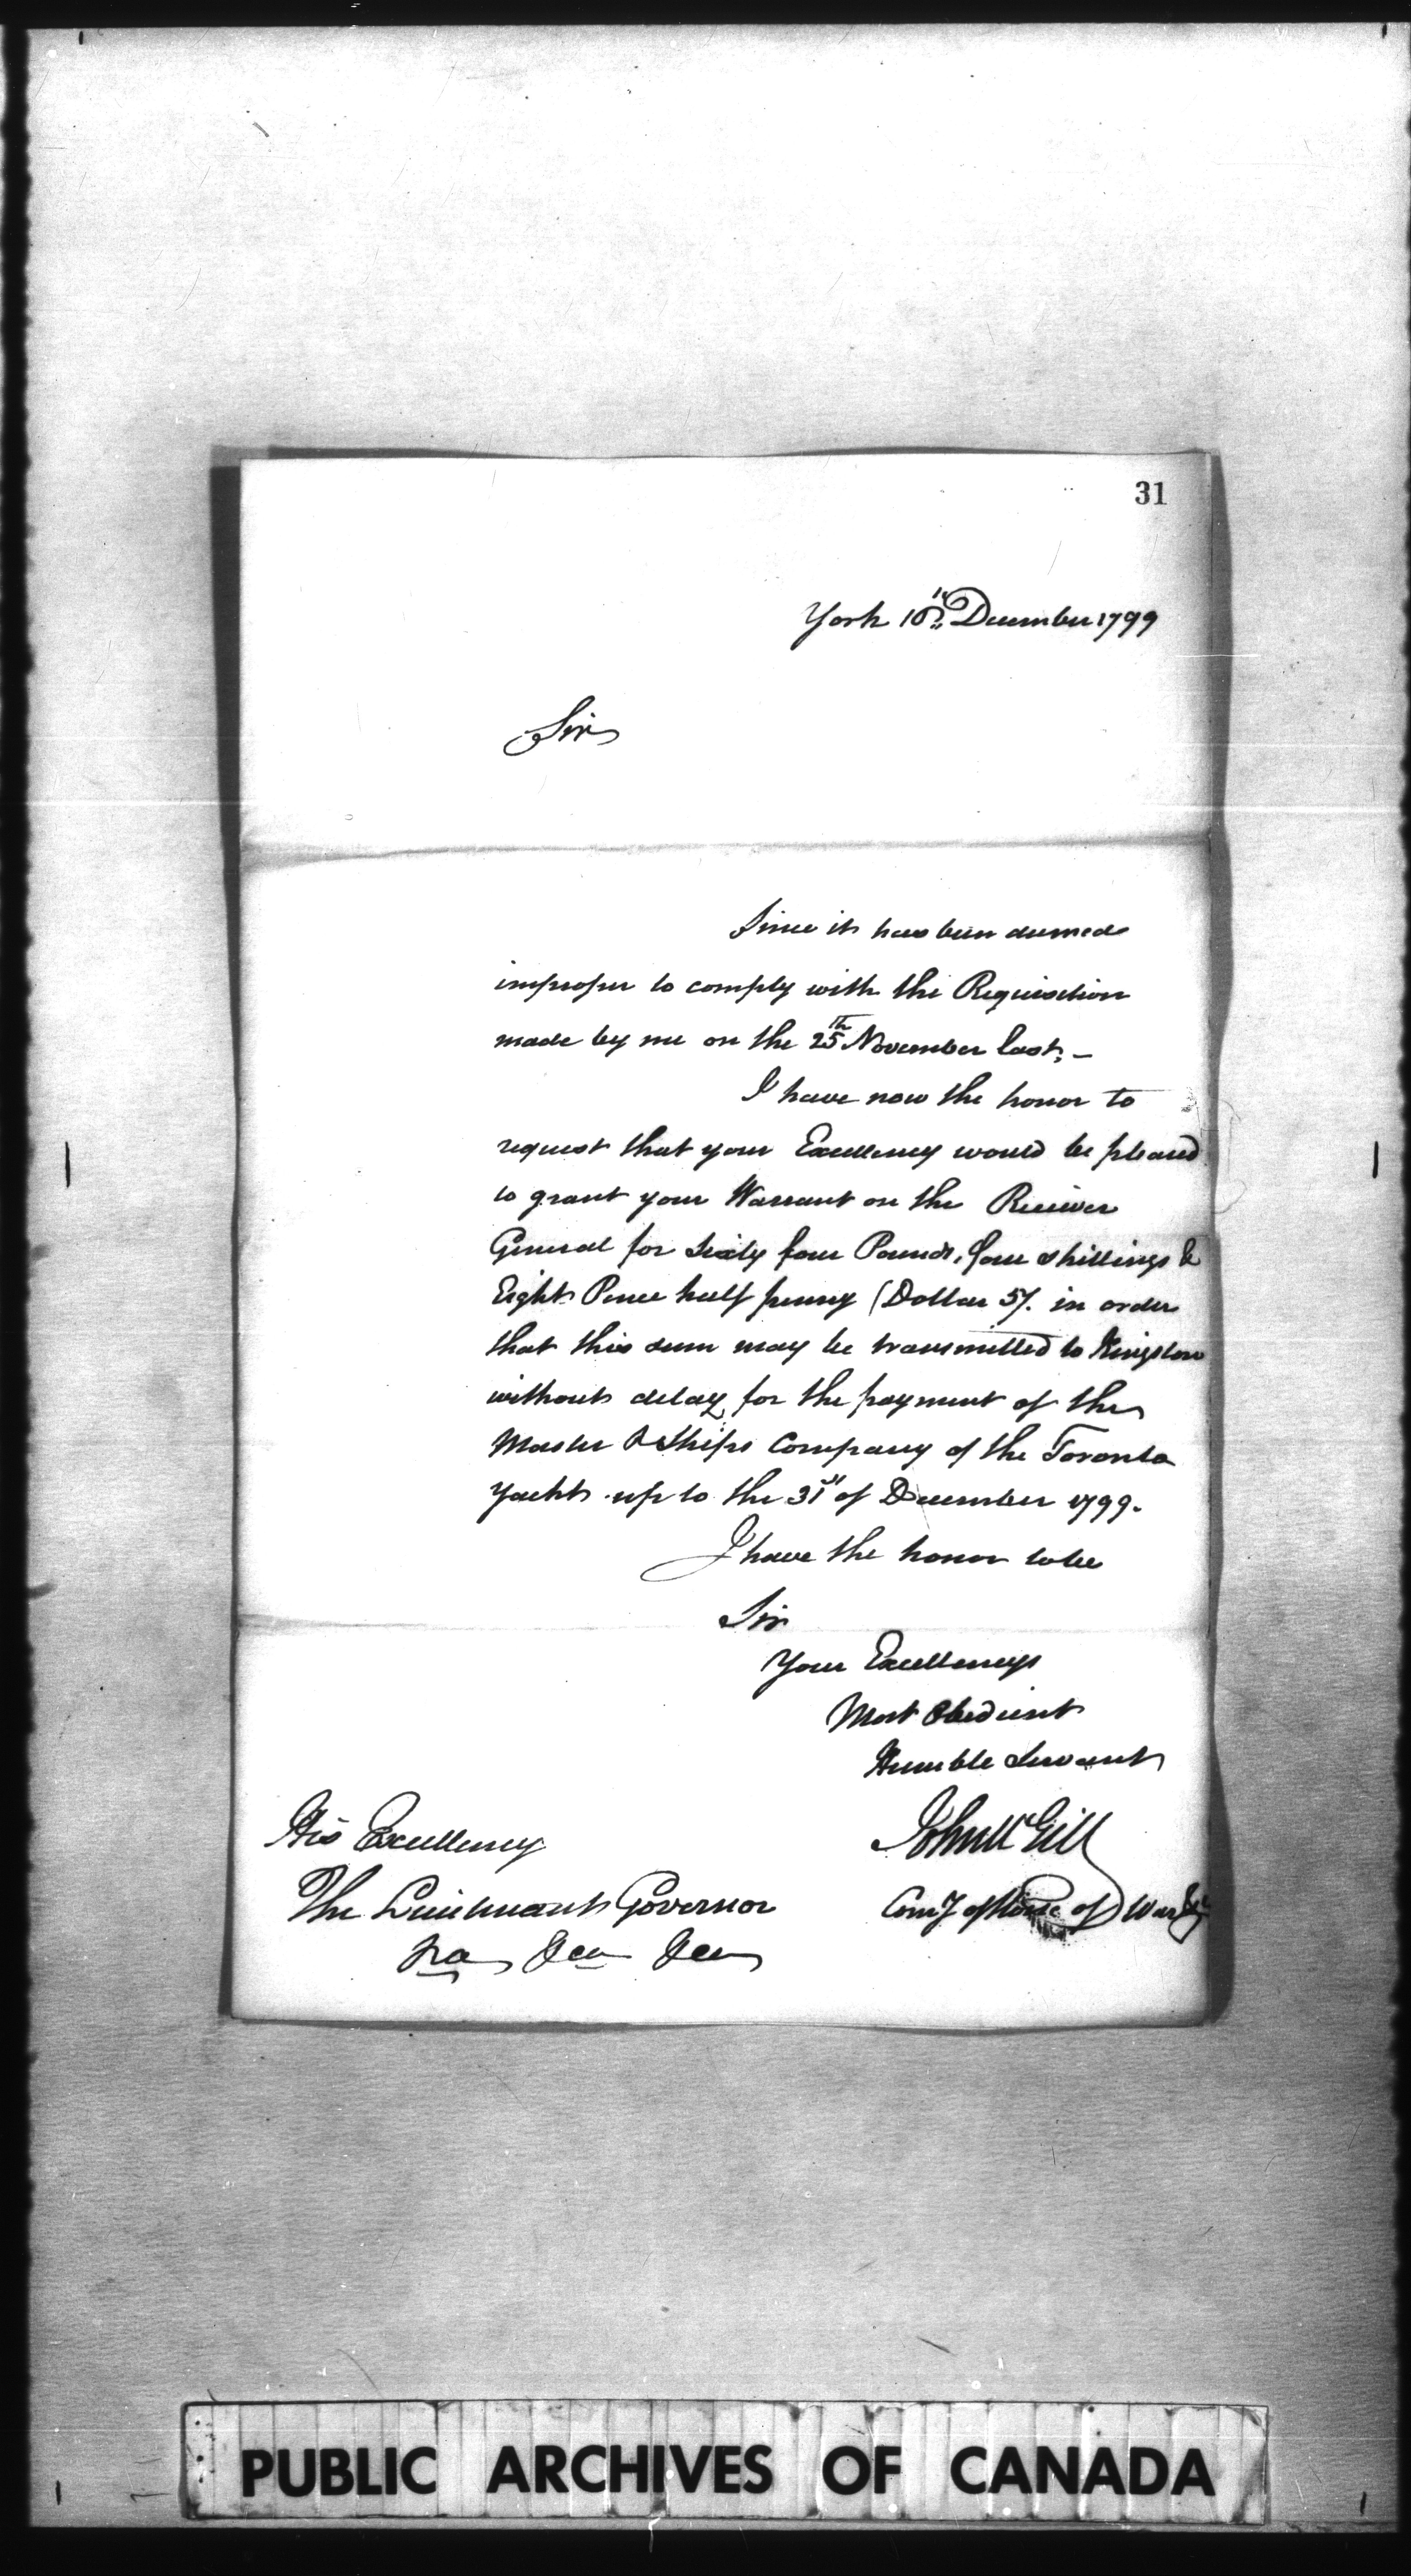 31
York 10th December 1799
Sir
Since it has been deemed
improper to comply with the Requisition
made by me on the 25th November last. —
I have now the honor to
request that your Excellency would be pleased
to grant your Warrant on the Receiver
General for Sixty four Pounds, four shillings &
Eight Pence half penny (Dollar 5/. in order
that this sum may be transmitted to Kingston
without delay, for the payment of the
Master & Ships Company of the Toronto
Yacht up to the 31st of December 1799.
I have the honor to be
Sir
Your Excellencys
Most Obedient
Humble Servant
John McGill
Comy of Stores of War &c
His Excellency
The Lieutenant Governor
&ca &ca &ca
PUBLIC ARCHIVES OF CANADA